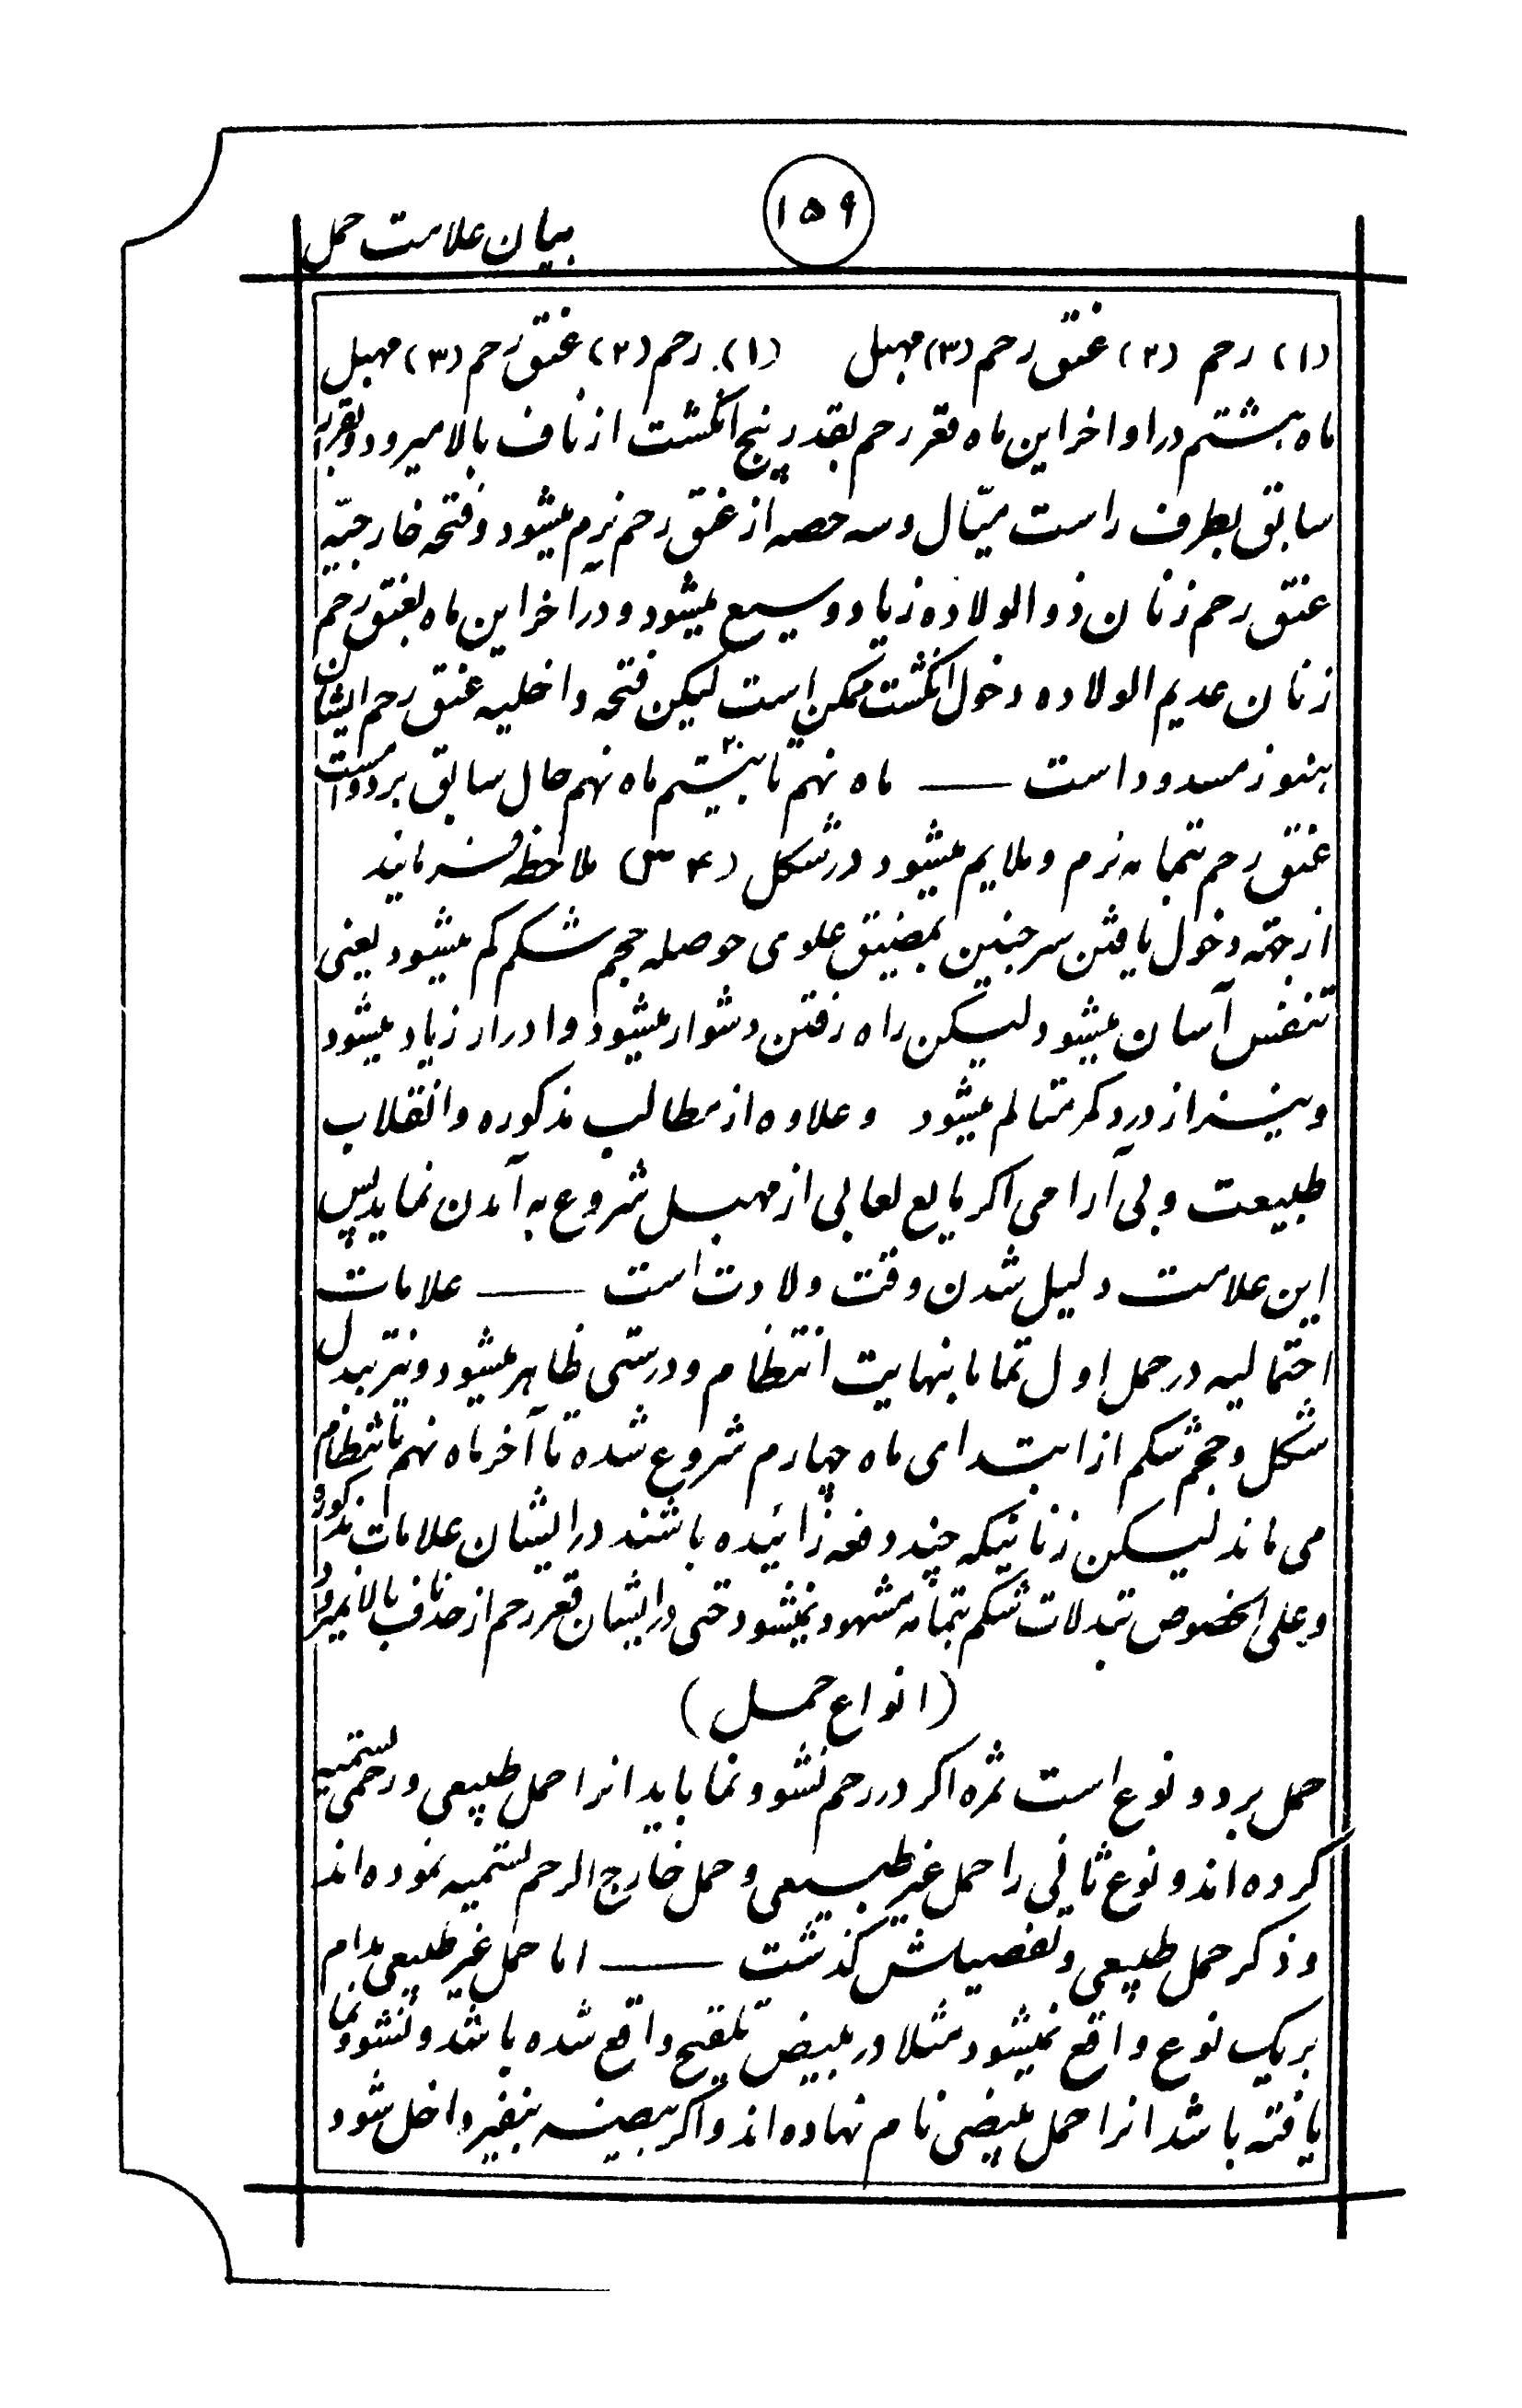 ۱۵۹
بیان علامت حمل
(۱) رحم (۲) عنق رحم (۳) مهبل (۱) رحم (۲) عنق رحم (۳) مهبل
ماه هشتم در اواخر این ماه قعر رحم بقدر پنج انگشت از ناف بالا میرود و بقرار
سابق بطرف راست میّال و سه حصه از عنق رحم نرم میشود و فتحه خارجیّه
عنق رحم زنان ذو الولاده زیاد وسیع میشود و در اخر این ماه بعنق رحم
زنان عدیم الولاده دخول انگشت ممکن است لیکن فتحه داخلیه عنق رحم ایشان
هنوز مسدود است — ماه نهم تا بیستم ماه نهم حال سابق بر دوام است
عنق رحم بتمامه نرم و ملایم میشود در شکل (۳۴) ملاحظه فرمایند
از جهة دخول یافتن سر جنین بمضیق علوی حوصله حجم شکم کم میشود یعنی
تنفس آسان میشود لیکن راه رفتن دشوار میشود و ادرار زیاد میشود
و نیز از درد کمر متالم میشود و علاوه از مطالب مذکوره و انقلاب
طبیعت و بی آرامی اکر مایع لعابی از مهبل شروع به آمدن نماید پس
این علامت دلیل شدن وقت ولادت است — علامات
احتمالیه در حمل اول تماما بنهایت انتظام و درستی ظاهر میشود و نیز تبدل
شکل و حجم شکم از ابتدای ماه چهارم شروع شده تا آخر ماه نهم بانتظام
می ماند لیکن زنانیکه چند دفعه زائیده باشند در ایشان علامات مذکوره
و علی الخصوص تبدلات شکم بتمامه مشهود نمیشود حتی در ایشان قعر رحم از حد ناف بالا نمیرود
(انواع حمل)
حمل بر دو نوع است ثمره اکر در رحم نشو و نما یابد انرا حمل طبیعی و رحمی تسمیه
کرده اند و نوع ثانی را حمل غیر طبیعی و حمل خارج الرحم تسمیه نموده اند
و ذکر حمل طبیعی و تفصیلش گذشت — اما حمل غیر طبیعی مدام
بر یک نوع واقع نمیشود مثلا در مبیض تلقیح واقع شده باشد و نشو و نما
یافته باشد انرا حمل مبیضی نام نهاده اند و اکر بیضه بنفیر داخل شود